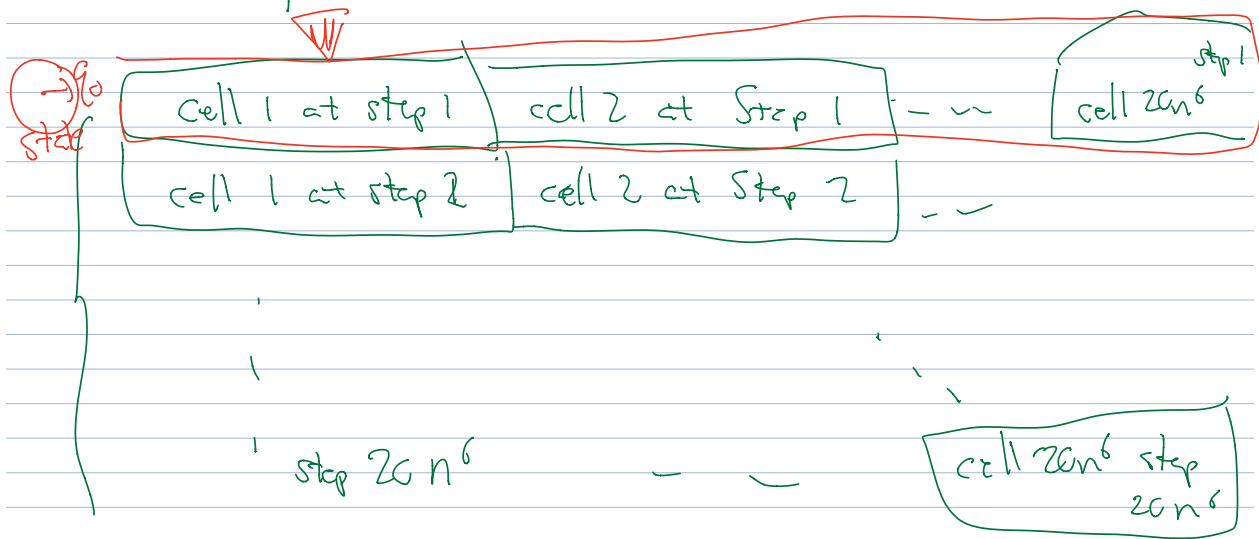 step 1
q0 cell 1 at step 1 cell 2 at Step 1 - ~ cell 20n⁶
state
cell 1 at step 2 cell 2 at Step 2 - ~
step 20 n⁶ - ~ cell 20n⁶ step
20n⁶